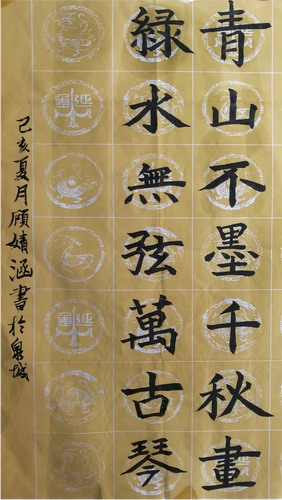 青山不墨千秋畫
綠水無弦萬古琴
己亥夏月顾婧涵書於泉城